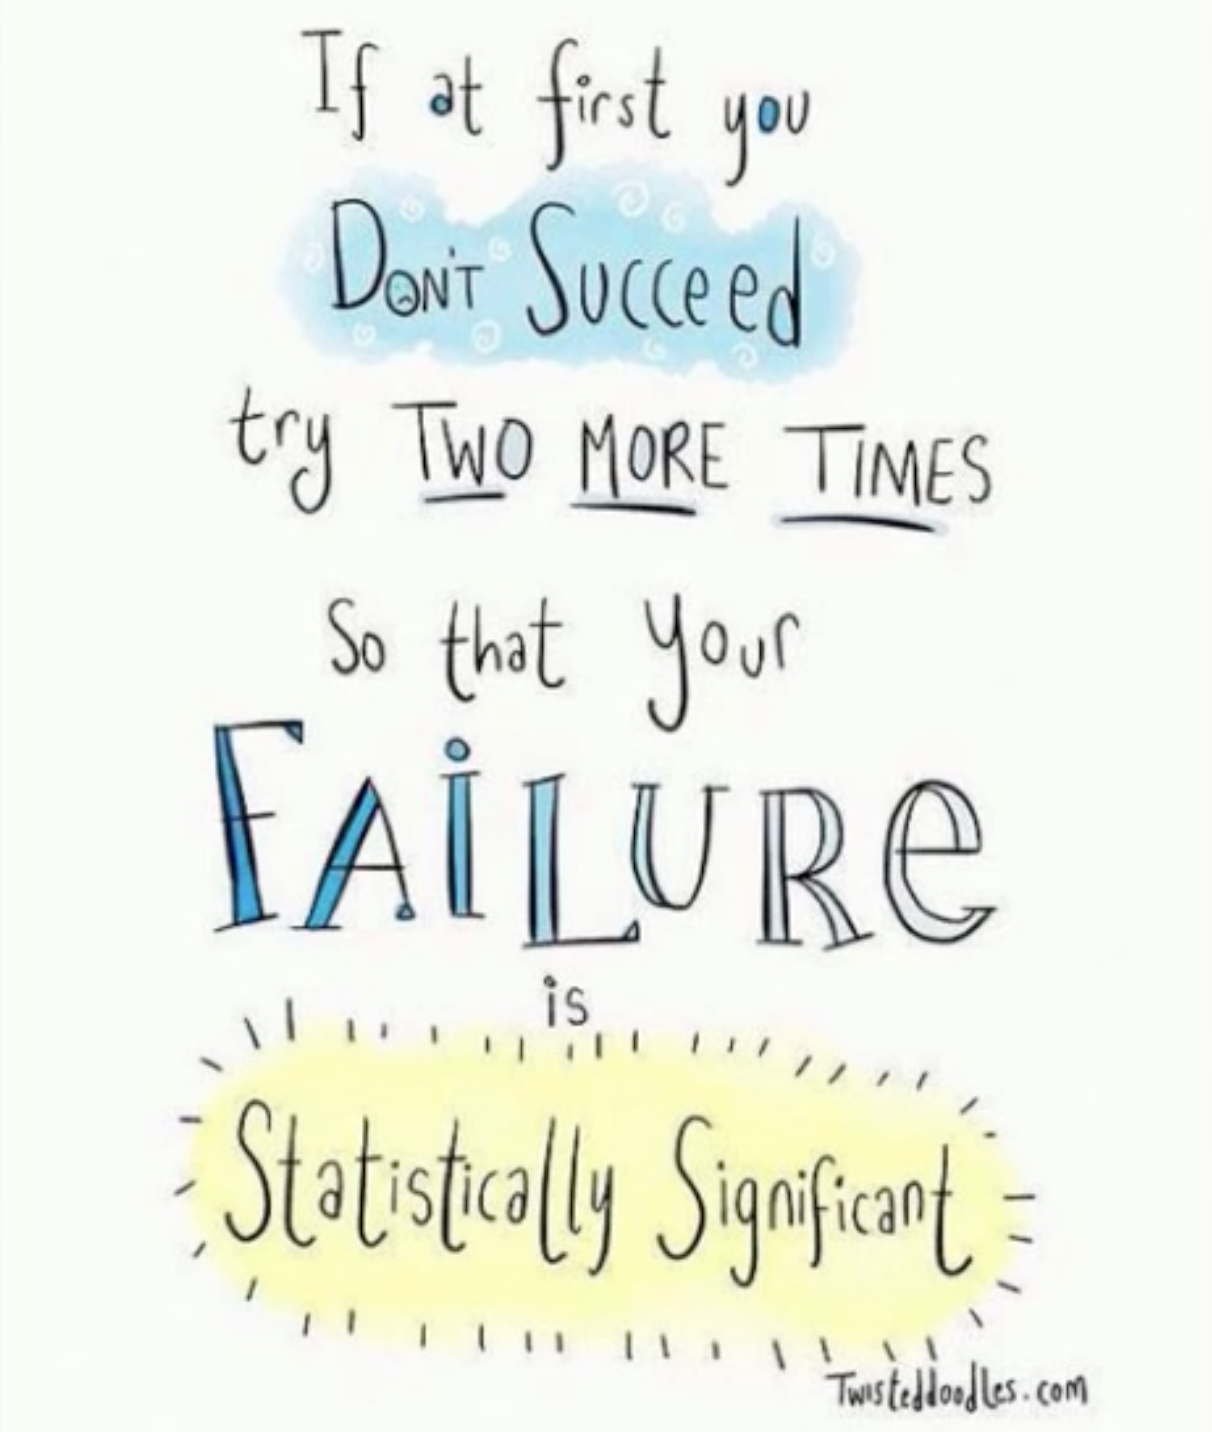 If at first you
DON'T Succeed
try TWO MORE TIMES
So that your
FAiLURe
is
Statistically Significant
Twisteddoodles.com